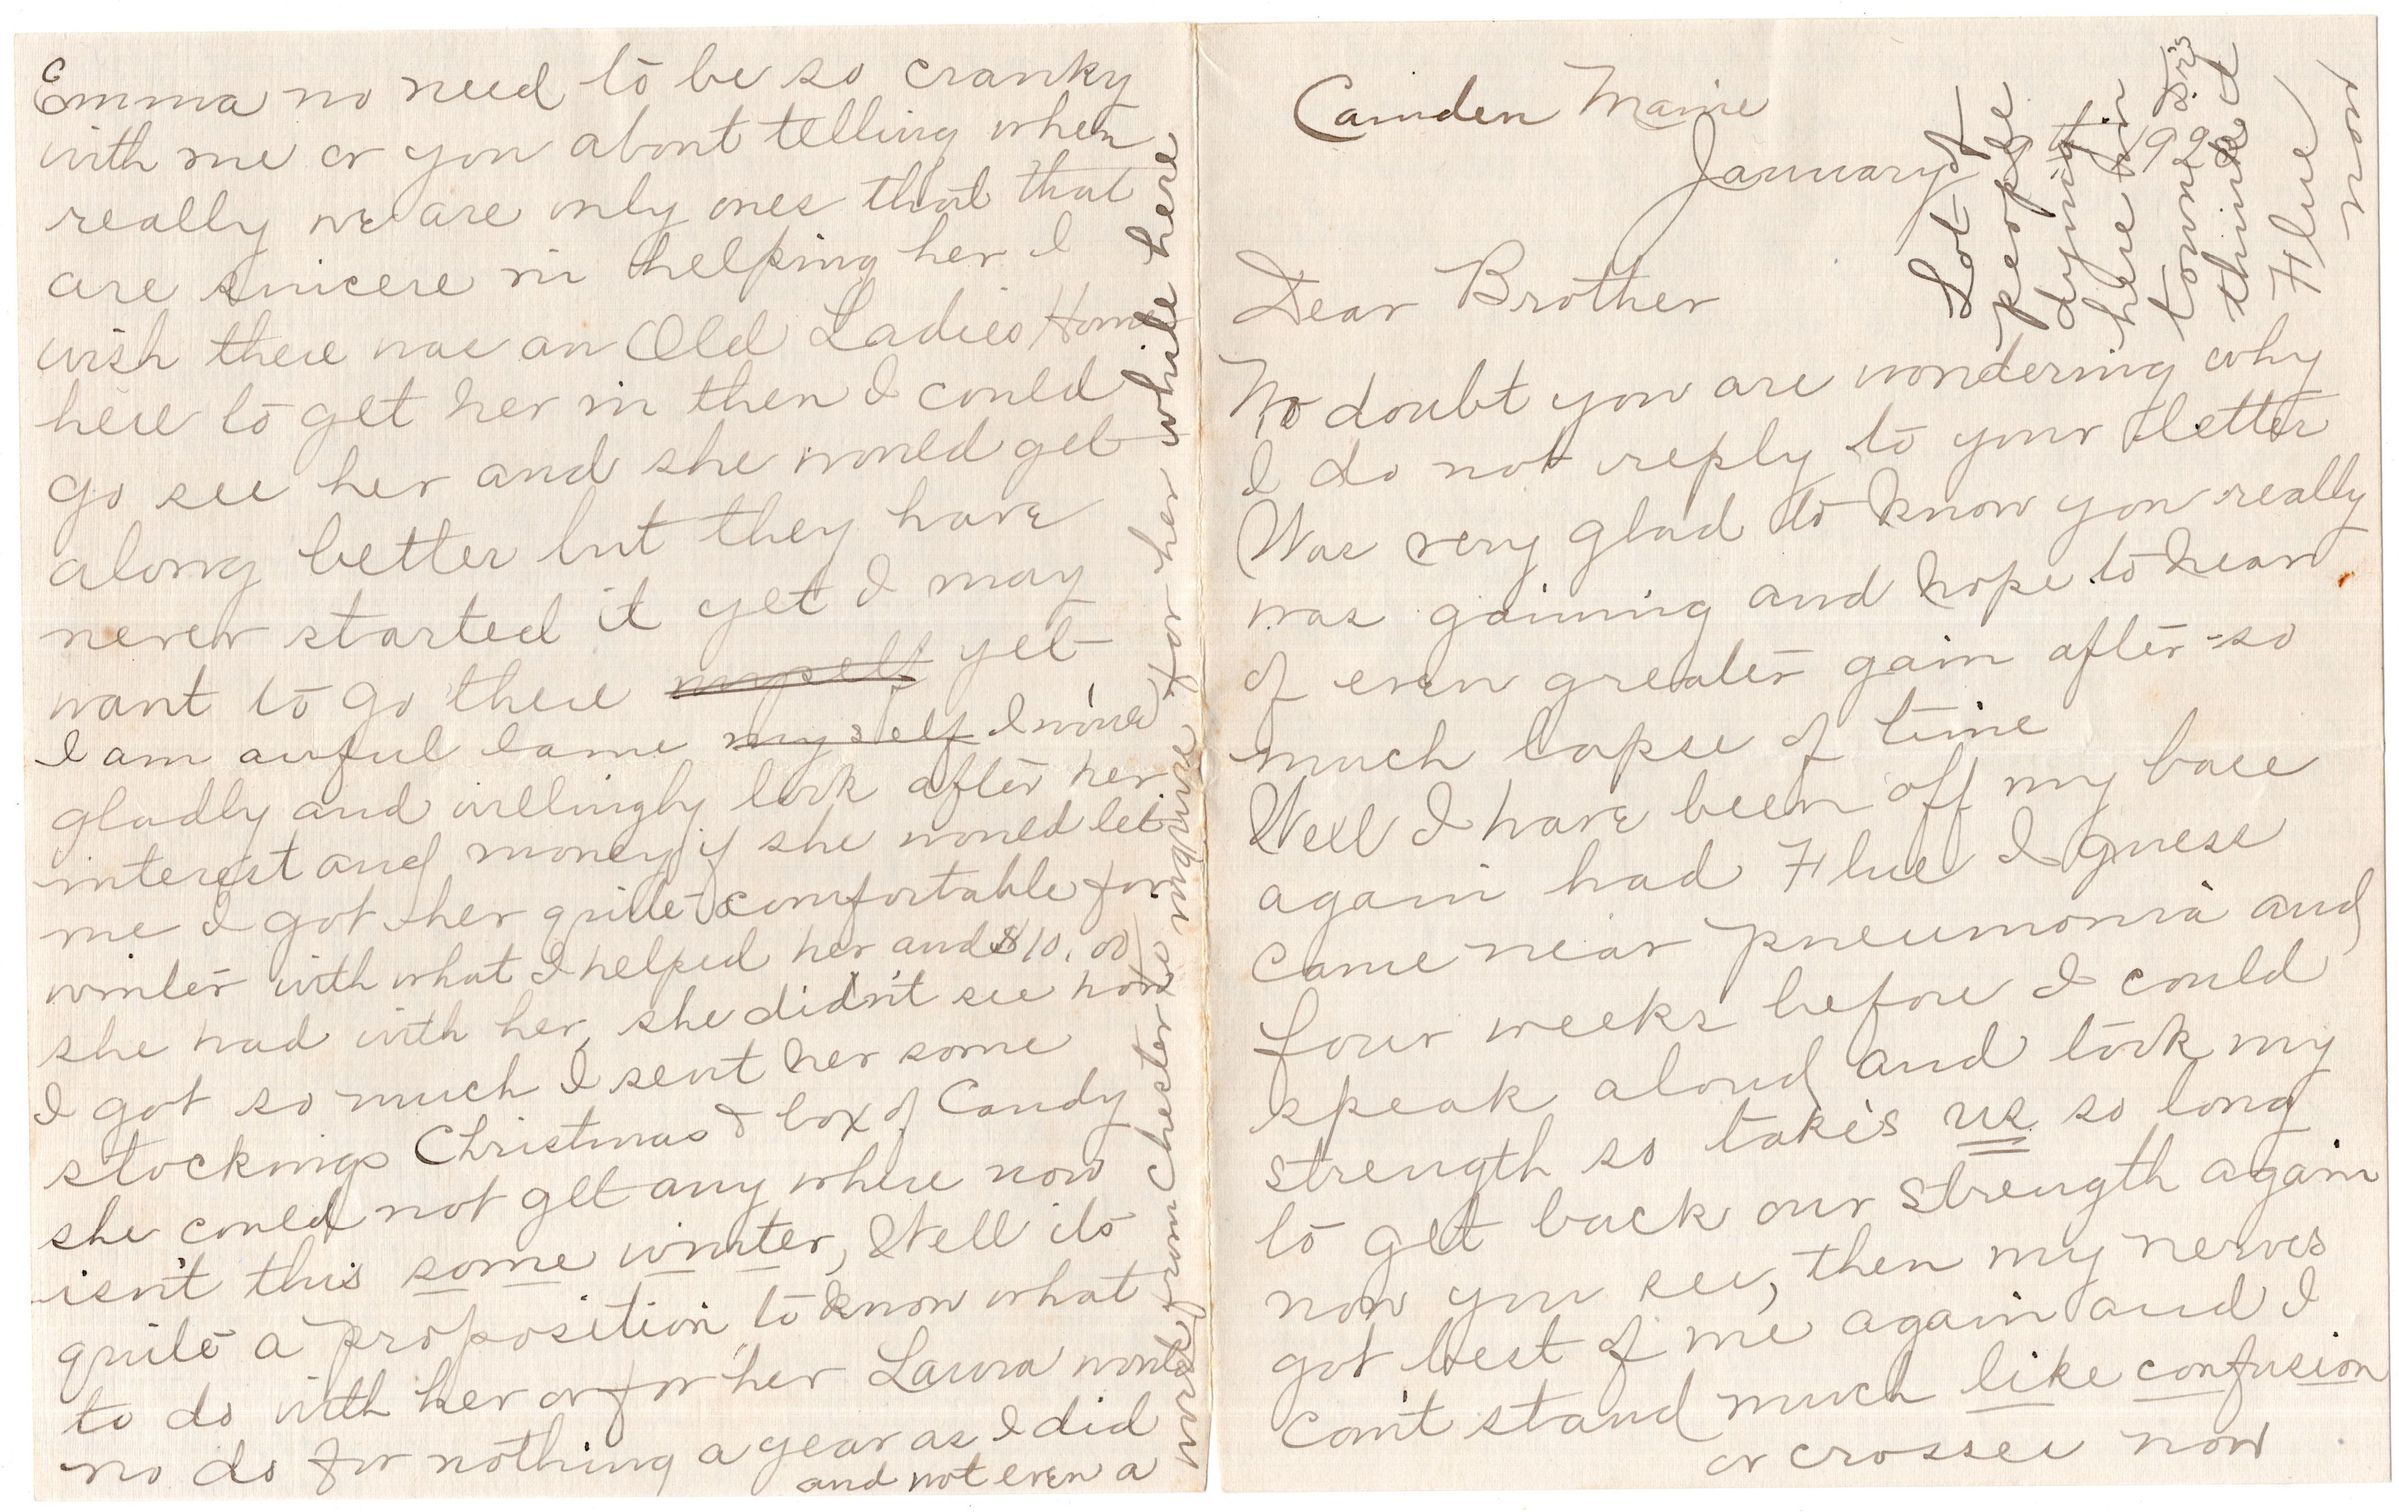 Camden Maine
January 9th 1929
Lot of
people
dying
here in
town
think
Flue
now
Dear Brother
No doubt you are wondering why
I do not reply to your letter
Was very glad to know you really
was gaining and hope to hear
of even greater gain after so
much lapse of time
Well I have been off my base
again had Flue I guess
came near pneumonia and
four weeks before I could
speak aloud and took my
strength so takes us so long
to get back our strength again
now you see, then my nerves
got best of me again and I
can't stand much like confusion
or crosses now
Emma no need to be so cranky
with me or you about telling when
really we are only ones that that
are sincere in helping her I
wish there was an Old Ladies Home
here to get her in then I could
go see her and she would get
along better but they have
never started it yet I may
want to go there myself yet
I am awful lame myself I would
gladly and willingly look after her
interest and money if she would let
me I got her quite comfortable for
winter with what I helped her and $10.00
she had with her, she didn't see how
I got so much I sent her some
stockings Christmas & box of Candy
she could not get any where now
isn't this some winter, Well its
quite a proposition to know what
to do with her or for her Laura would
no do for nothing a year as I did
and not even a
week from Chester he make sure for her while here